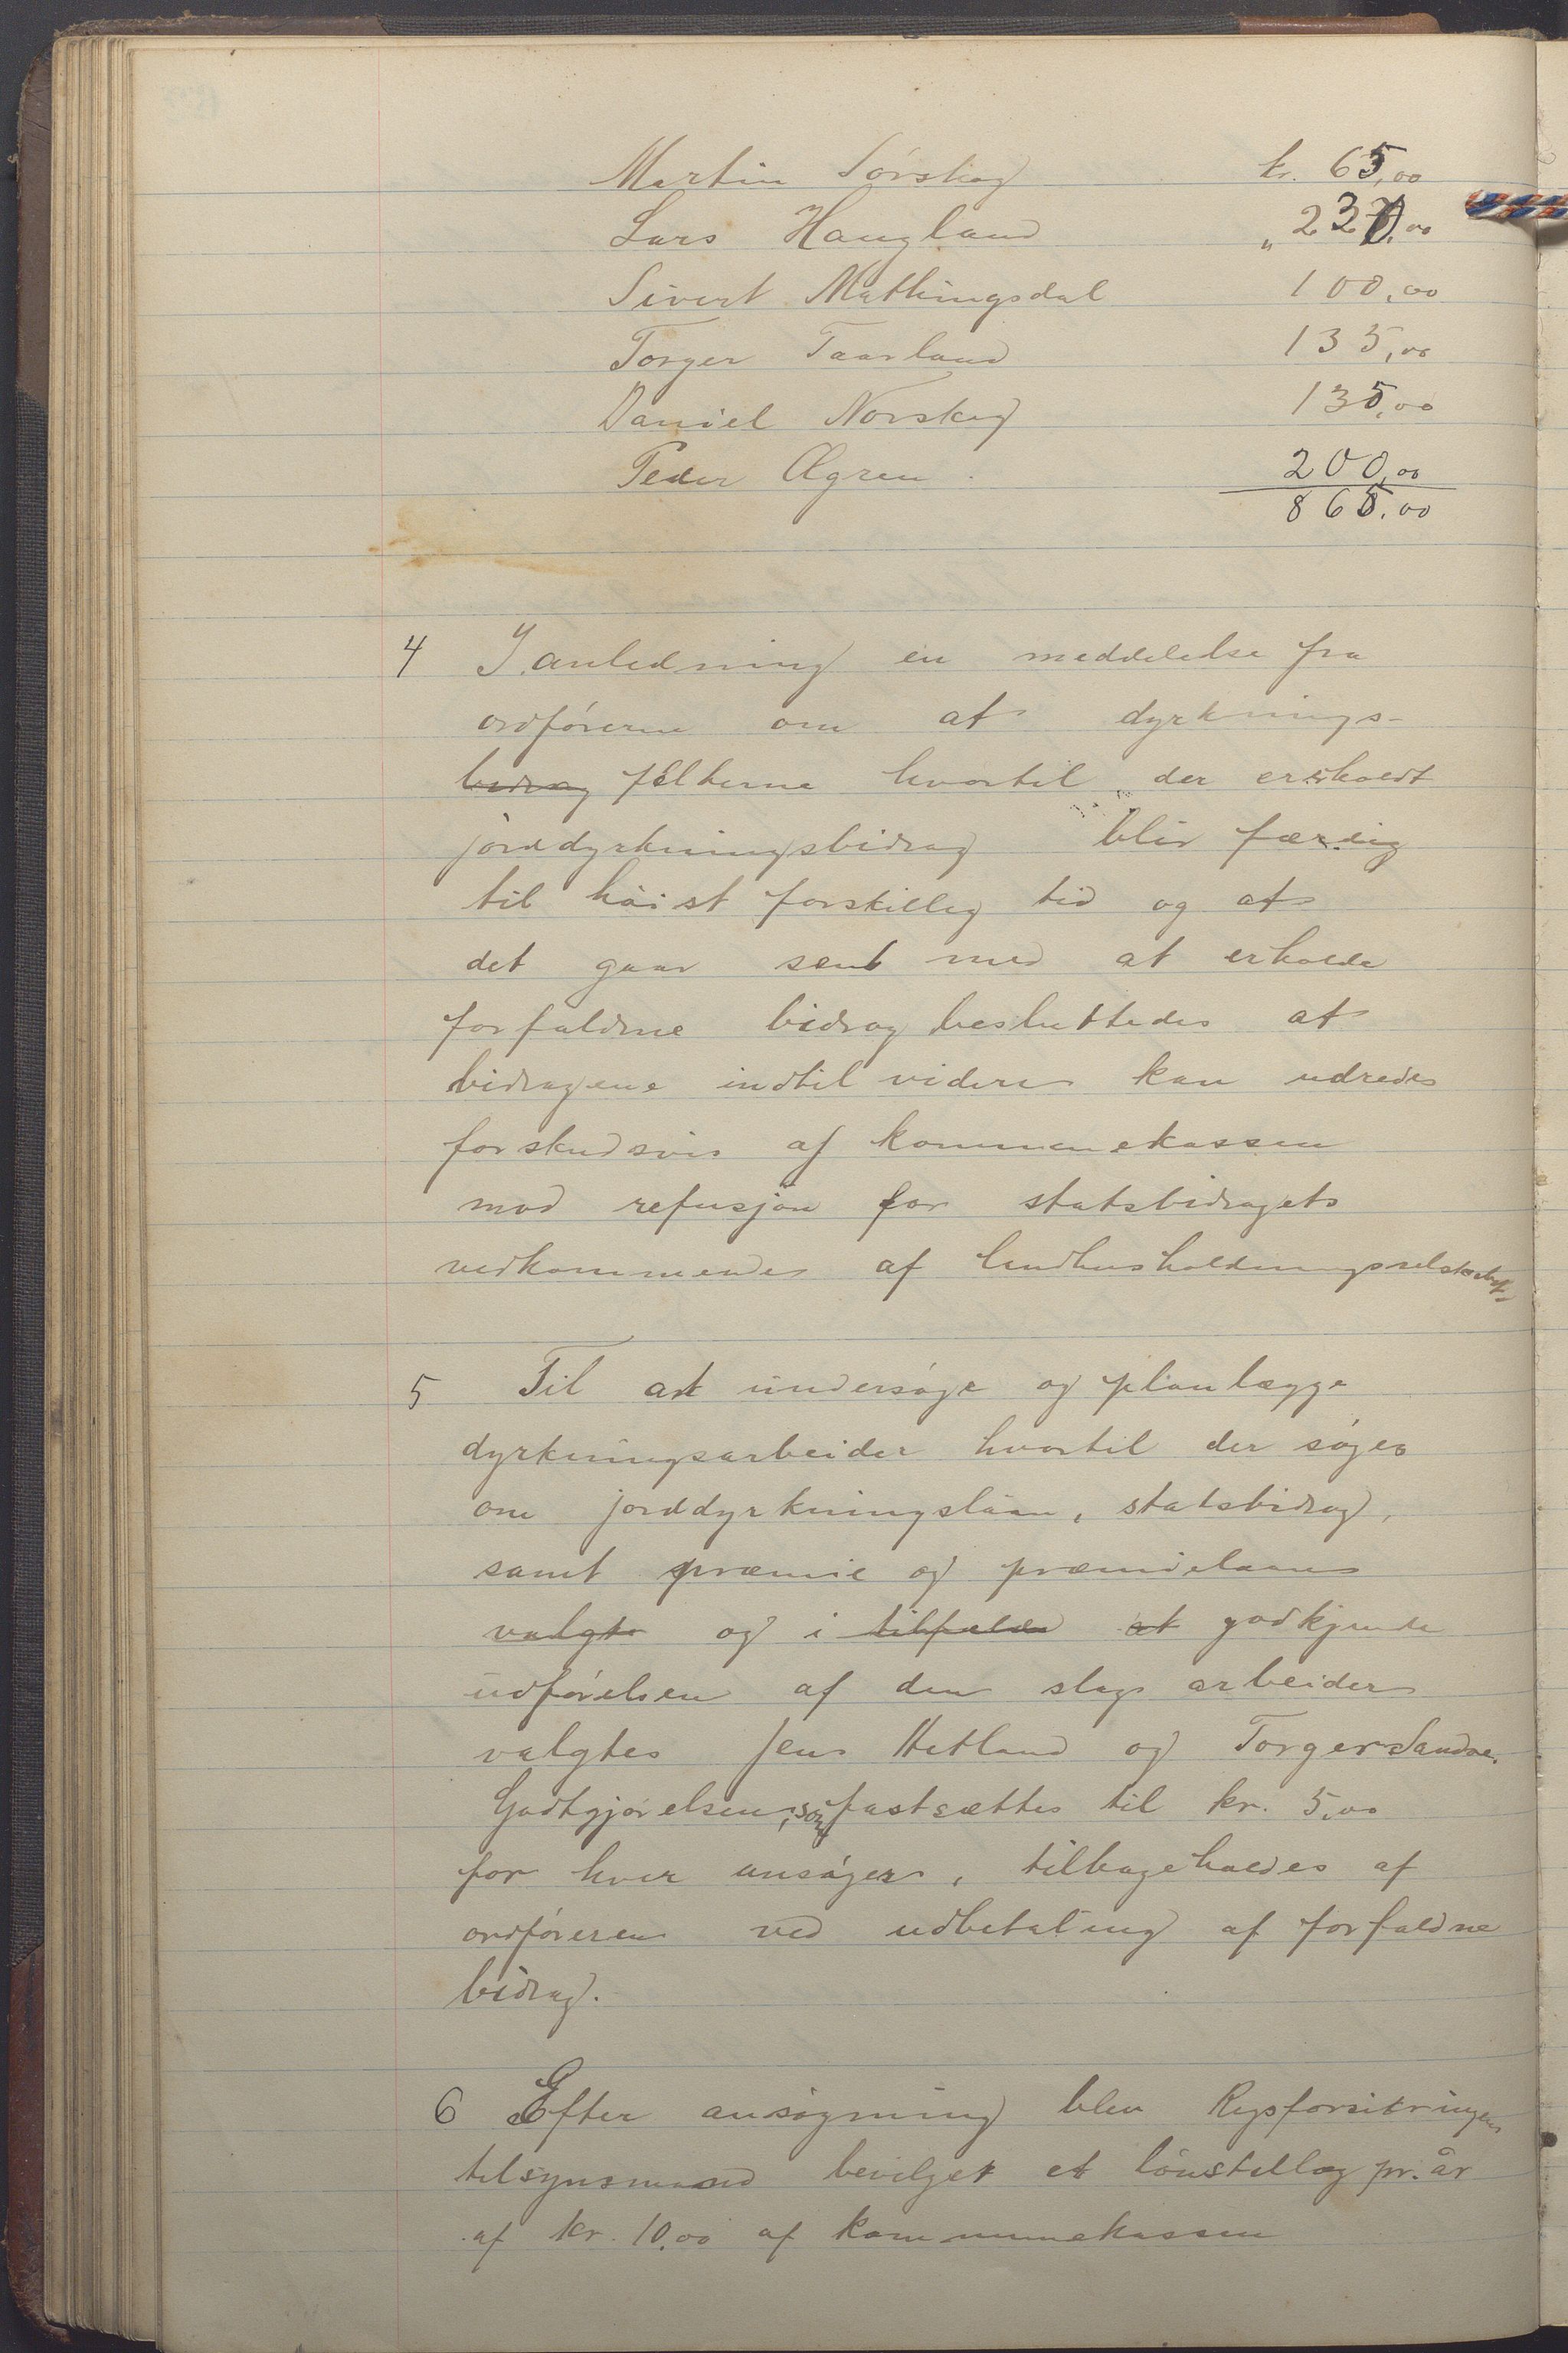 Martin Sørskog kr. 65,00
Lars Haugland " 230,00
Sivert Mathingsdal 100,00
Torger Taarland 135,00
Daniel Norskog 135,00
Peder Ægren. 200,00
865,00
4 I anledning en meddelelse fra
ordføreren om at dyrknings-
bidrag felterne hvortil der er erholdt
jorddyrkningsbidrag blir færdig
til høist forskellig tid og at
det gaar sent med at erholde
forfaldne bidrag besluttedes at
bidragene indtil videre kan udredes
forskudsvis af kommunekassen
mod refusjon for statsbidragets
vedkommende af landhusholdningsselskabet
5 Til at undersøge og planlægge
dyrkningsarbeider hvortil der søges
om jorddyrkningslaan, statsbidrag,
samt præmie og præmielaan
valgte og i tilfælde at godkjende
udførelsen af den slags arbeider
valgtes Jens Hetland og Torger Sandve.
Godtgjørelsen, som fastsættes til kr. 5,00
for hver ansøger, tilbageholdes af
ordføreren ved udbetaling af forfaldne
bidrag.
6 Efter ansøgning blev Rygsforsikringens
tilsynsmand bevilget et lønstillæg pr. år
af kr. 10,00 af kommunekassen